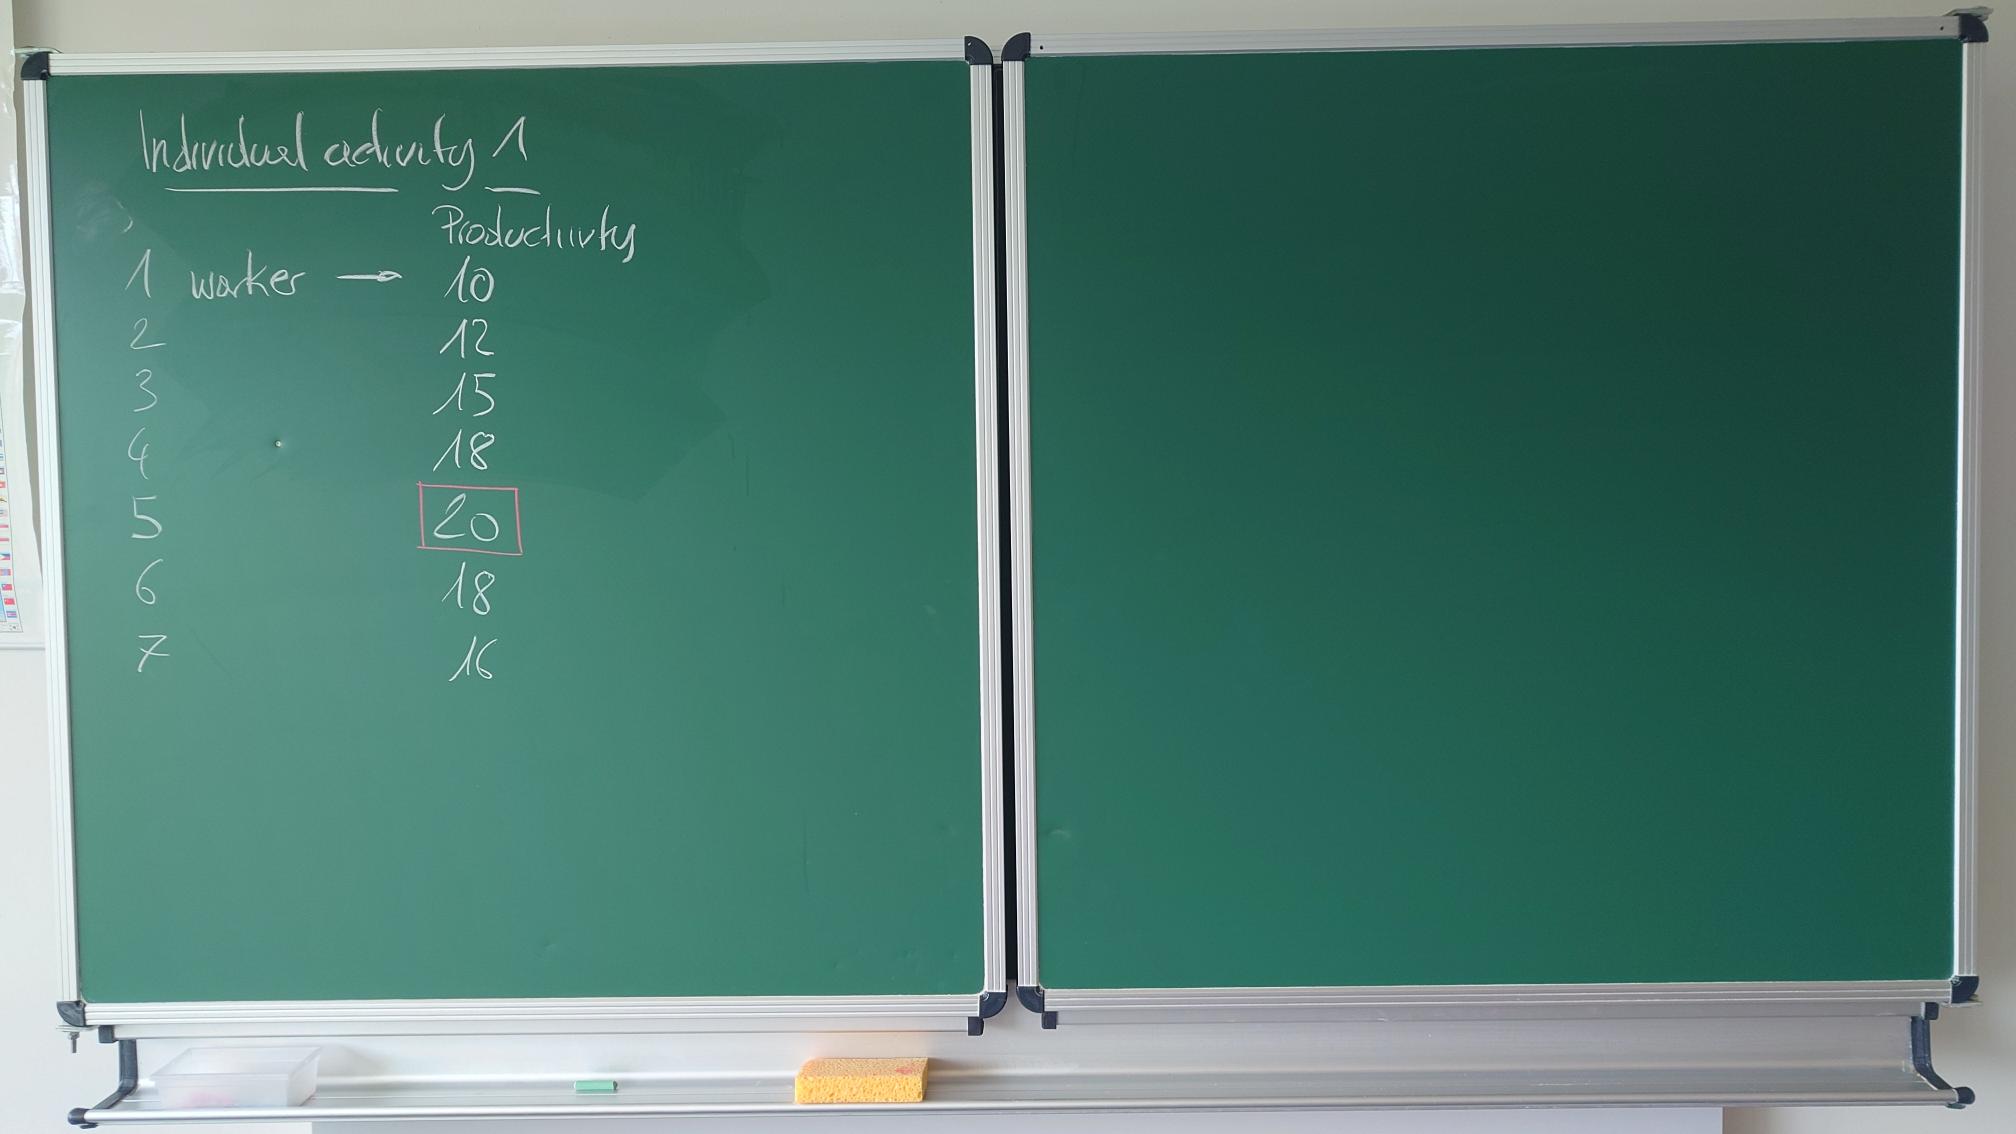 Individual activity 1
Productivity
1 worker → 10
2 12
3 15
4 18
5 20
6 18
7 16